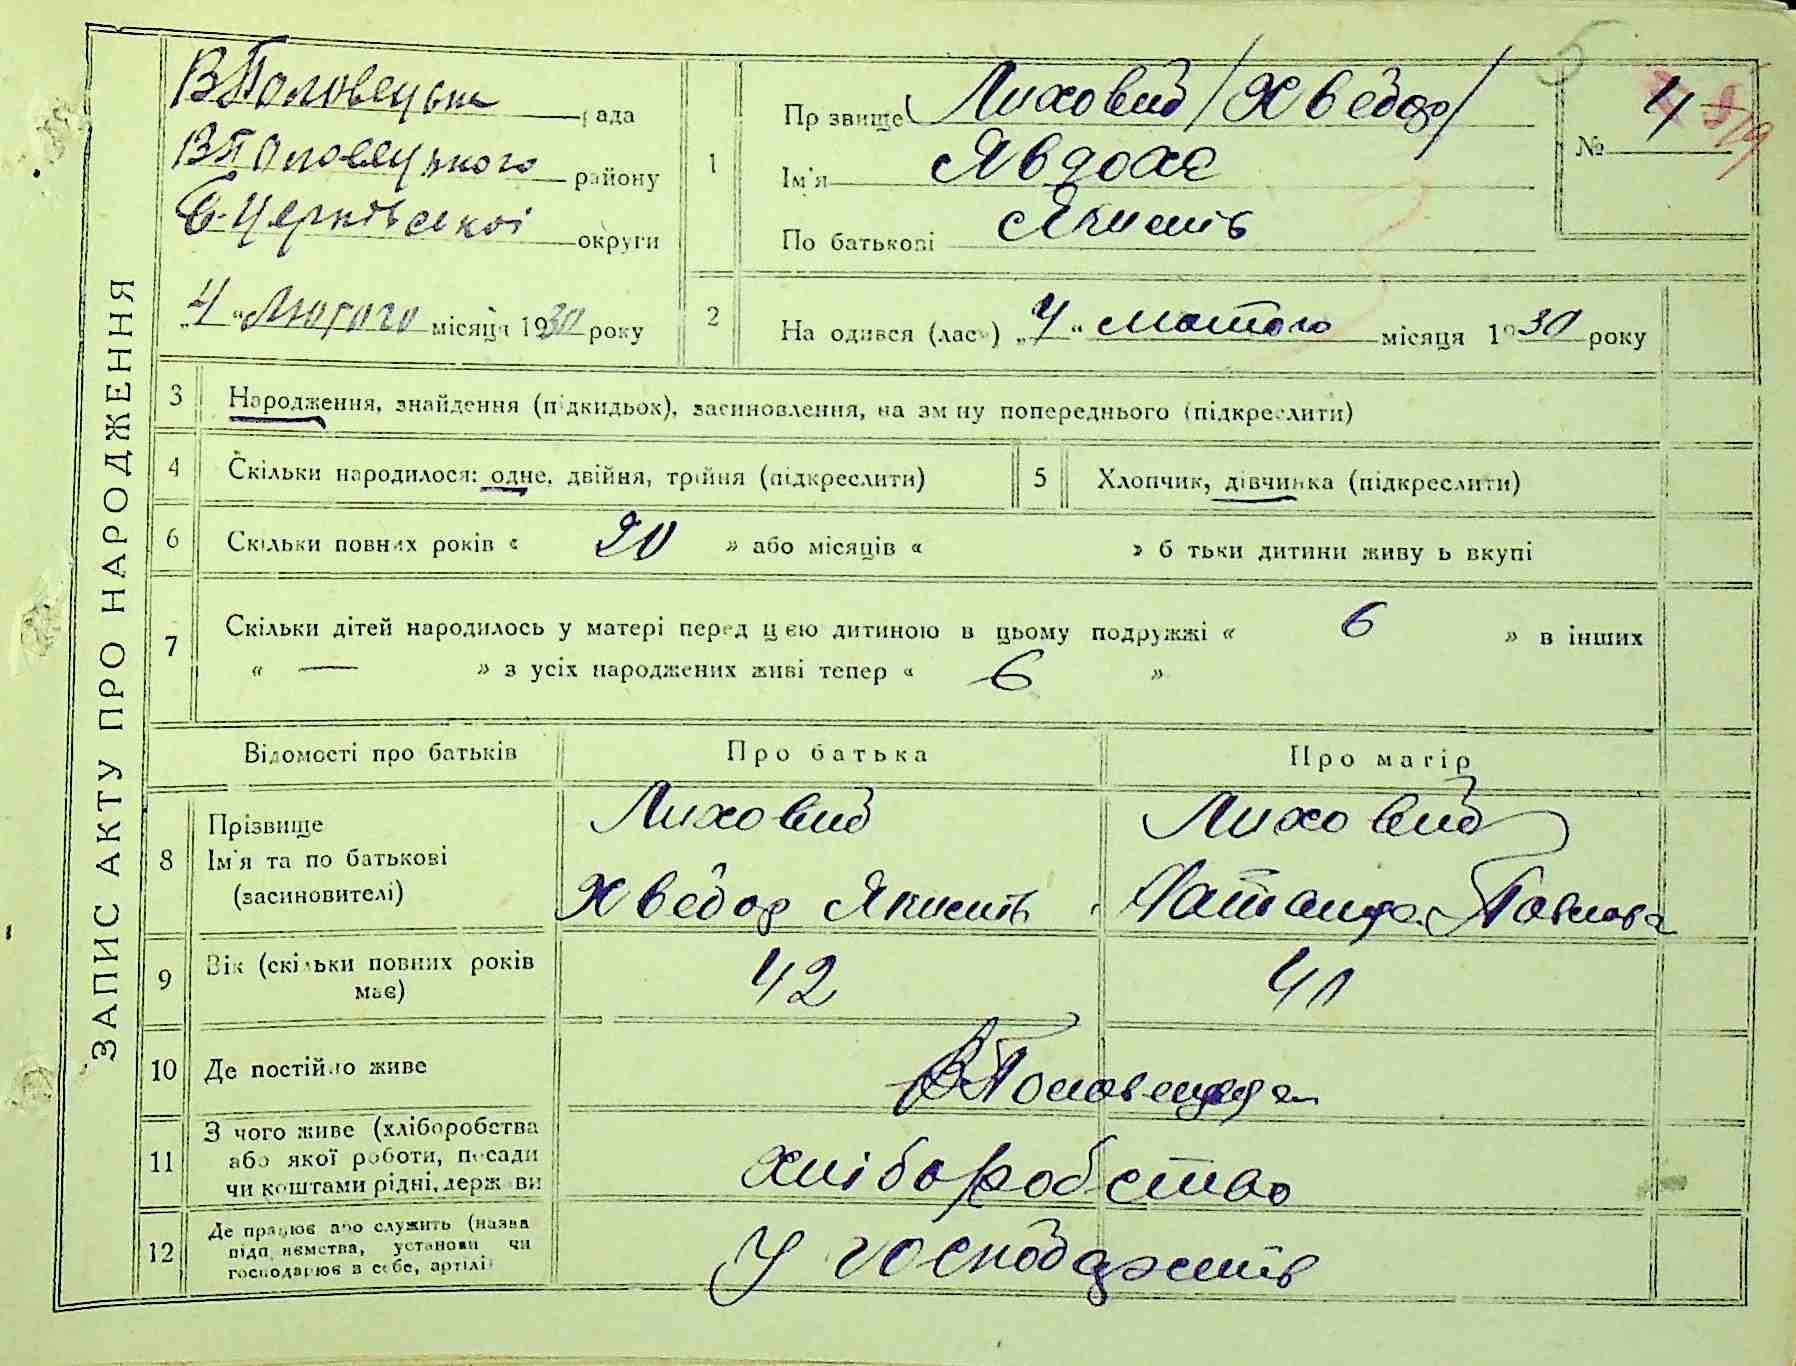 ЗАПИС АКТУ ПРО НАРОДЖЕННЯ
В Половецька рада
В Половецького району
Б-Церківської округи
„4“ Лютого місяця 1930 року
1
Прізвище Лиховид /Хведор/
Ім'я Явдохє
По батькові Якимів
№ 4
5
2
На одився (лась) „4“ Лютого місяця 1930 року
3 Народження, знайдення (підкидьох), засиновлення, на зміну попереднього (підкреслити)
4 Скільки народилося: одне, двійня, трійня (підкреслити)
5 Хлопчик, дівчинка (підкреслити)
6 Скільки повних років « 20 » або місяців « » б тьки дитини живу ь вкупі
7 Скільки дітей народилось у матері перед цією дитиною в цьому подружжі « 6 » в інших
« — » з усіх народжених живі тепер « 6 »
Відомості про батьків
Про батька
Про матір
8
Прізвище
Ім'я та по батькові
(засиновителі)
Лиховид
Хведор Якимів
Лиховид
Павлова
9
Вік (скільки повних років
має)
42
41
10 Де постійно живе
В Половецка
11
З чого живе (хліборобства
або якої роботи, посади
чи коштами рідні, держави
хліборобство
12
Де працює або служить (назва
підприємства, установи чи
господарює в себе, артілі)
У господарстві